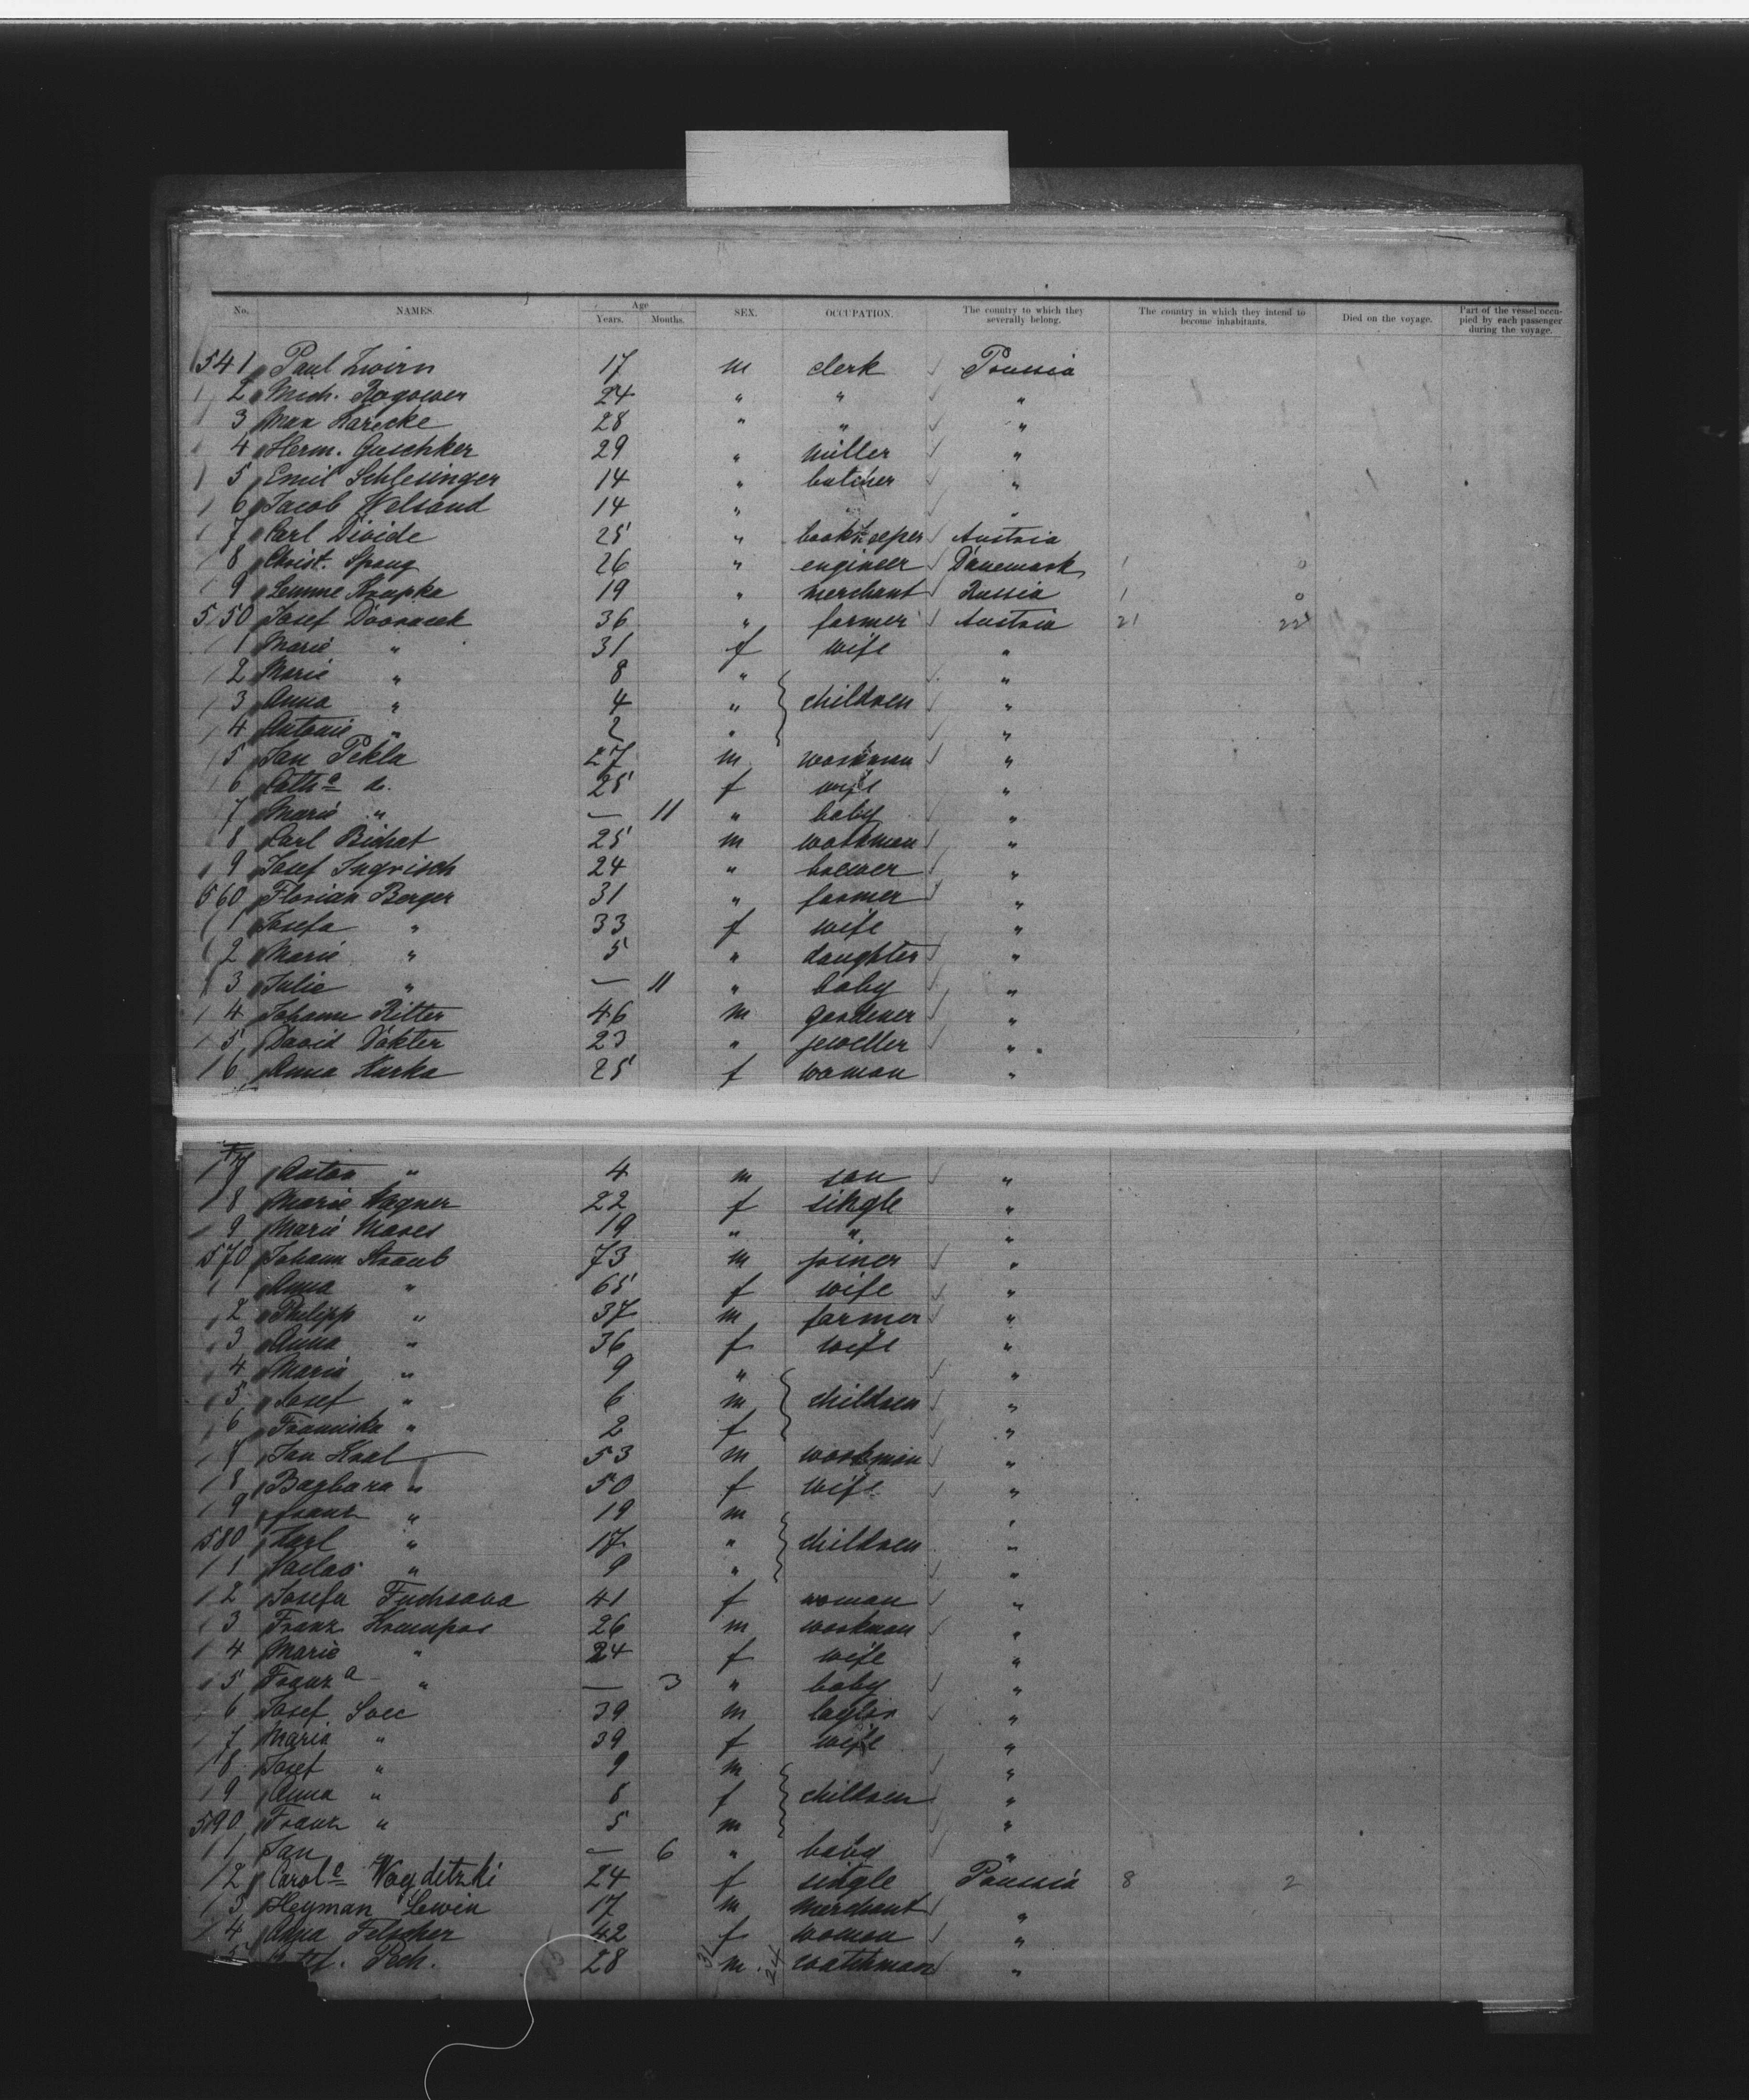 No. NAMES. Age Years. Months. SEX. OCCUPATION. The country to which they severally belong. The country in which they intend to become inhabitants. Died on the voyage. Part of the vessel occupied by each passenger during the voyage.
541 Paul Zwirn 17 m clerk Prussia
2 Mich. Rogower 24 " " "
3 Max Karecke 28 " " "
4 Herm. Guschker 29 " miller "
5 Emil Schlesinger 14 " butcher "
6 Jacob Welsand 14 " " "
7 Carl Divide 25 " bookkeeper Austria
8 Christ. Spang 26 " engineer Danemark 1 0
9 Krupka 19 " merchant Russia 1 0
550 Josef Dvoracek 36 " farmer Austria 21 22
1 Marie " 31 f wife "
2 Marie " 8 " "
3 Anna " 4 " children "
4 Antonie " 2 " "
5 Jan Pekla 27 m workman "
6 Catha do. 25 f wife "
7 Marie " — 11 " baby "
8 Carl Bichat 25 m workman "
9 Josef Ingrisch 24 " brewer "
560 Florian Berger 31 " farmer "
1 Josefa " 33 f wife "
2 Marie " 5 " daughter "
3 Julie " — 11 " baby "
4 Johann Ritter 46 m gardener "
5 David Dokter 23 " jeweller "
6 Anna Hurka 25 f woman "
7 Anton " 4 m son "
8 Marie Wagner 22 f single "
9 Marie Mares 19 " " "
570 Johann Straub 73 m joiner "
1 Anna " 65 f wife "
2 Philipp " 37 m farmer "
3 Anna " 36 f wife "
4 Maria " 9 " "
5 Josef " 6 m children "
6 Franziska " 2 f "
7 Jan Kral 53 m workman "
8 Barbara " 50 f wife "
9 Franz " 19 m "
580 Karl " 17 " children "
1 Vaclav " 9 " "
2 Josefa Fuchsova 41 f woman "
3 Franz 26 m workman "
4 Marie " 24 f wife "
5 Franza " — 3 " baby "
6 Josef Svec 39 m taylor "
7 Maria " 39 f wife "
8 Josef " 9 m "
9 Anna " 8 f children "
590 Franz " 5 m "
1 Jan " — 6 " baby "
2 Carole Woyditzki 24 f single Prussia 8 2
3 Heyman Lewin 17 m merchant "
4 Anna Felscher 42 f woman "
5 Pech. 28 m. watchman "